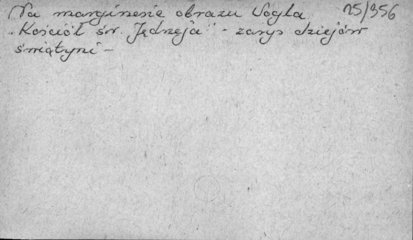 Na marginesie obrazu Vogla 25/956
"Kościół św. Jędrzeja" - zarys dziejów
świątyni -